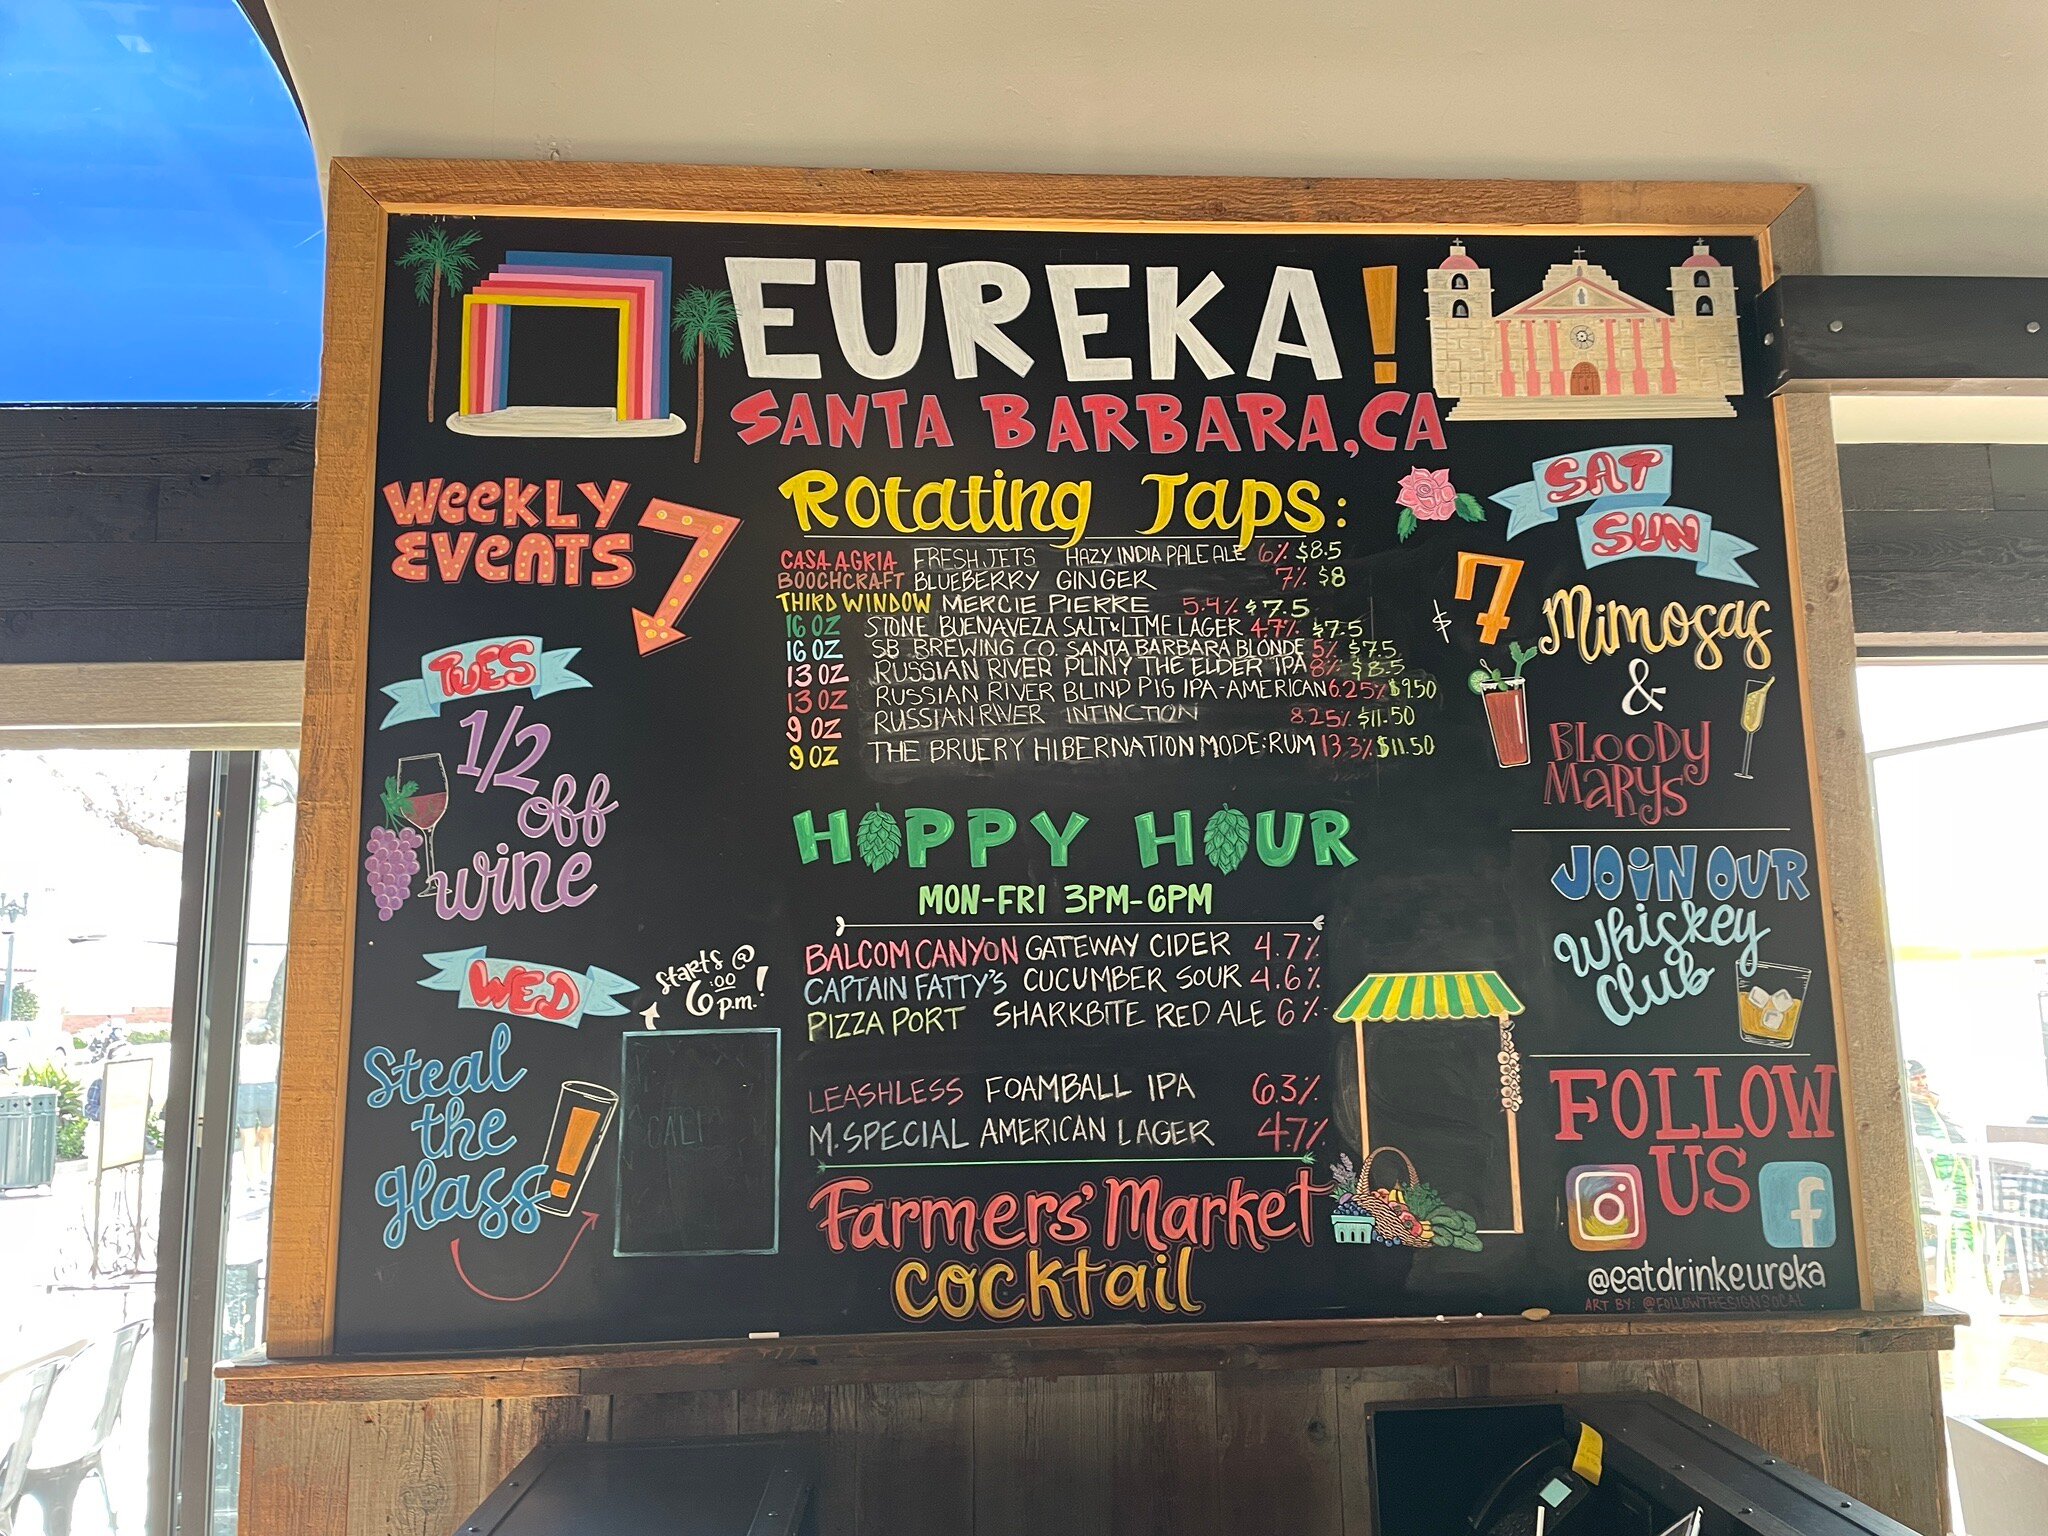 EUREKA!
SANTA BARBARA, CA
WEEKLY
EVENTS
TUES
1/2
off
wine
WED
Starts @
6:00
p.m.!
Steal
the
glass
!
CALI
Rotating Taps:
CASA AGRIA FRESH JETS HAZY INDIA PALE ALE 6% $8.5
BOOCHCRAFT BLUEBERRY GINGER 7% $8
THIRD WINDOW MERCIE PIERRE 5.4% $7.5
16 OZ STONE BUENAVEZA SALT & LIME LAGER 4.7% $7.5
16 OZ SB BREWING CO. SANTA BARBARA BLONDE 5% $7.5
13 OZ RUSSIAN RIVER PLINY THE ELDER IPA 8% $8.5
13 OZ RUSSIAN RIVER BLIND PIG IPA-AMERICAN 6.25% $9.50
9 OZ RUSSIAN RIVER INTINCTION 8.25% $11.50
9 OZ THE BRUERY HIBERNATION MODE: RUM 13.3% $11.50
HAPPY HOUR
MON-FRI 3PM-6PM
BALCOM CANYON GATEWAY CIDER 4.7%
CAPTAIN FATTY'S CUCUMBER SOUR 4.6%
PIZZA PORT SHARKBITE RED ALE 6%
LEASHLESS FOAMBALL IPA 6.3%
M. SPECIAL AMERICAN LAGER 4.7%
Farmers' Market
Cocktail
SAT
SUN
$7
Mimosas
&
BLOODY
MARYS
JOIN OUR
Whiskey
Club
FOLLOW
US
f
@eatdrinkeureka
ART BY: @FOLLOWTHESIGNSOCAL